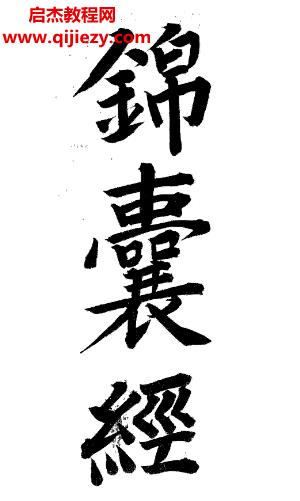 启杰教程网
www.qijiezy.com
錦
囊
經